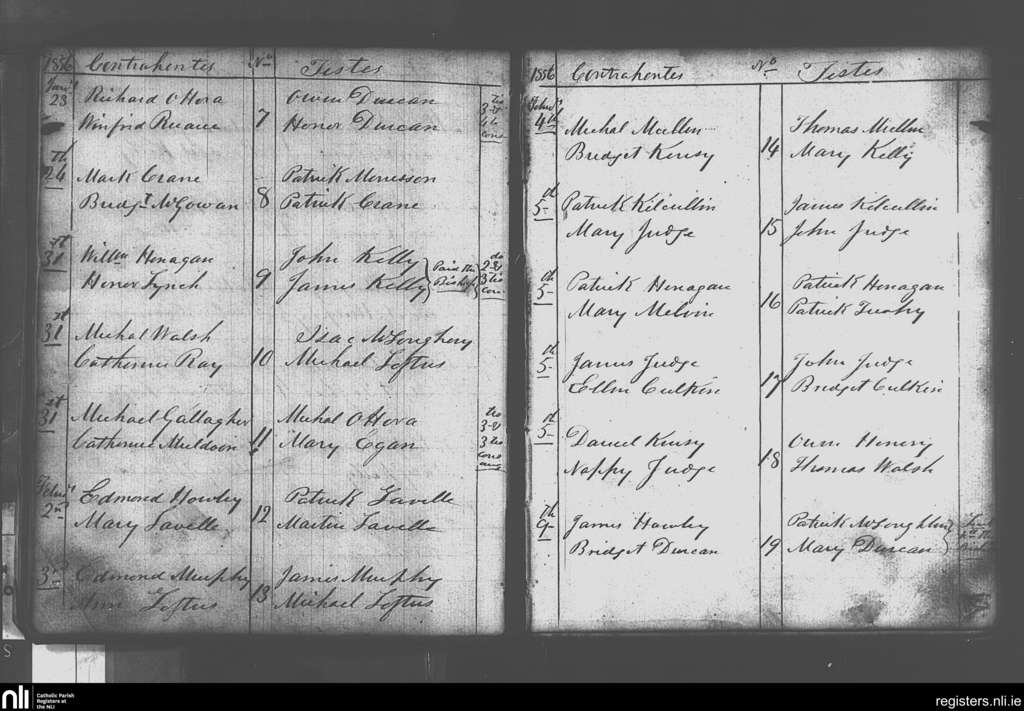 1856 Contrahentes No Testes
Jany
23 Richard O'Hora Owen Duncan
Winifrid Ruane 7 Honor Duncan
th
24 Mark Crane Patrick Morrisson
Bridgt McGowan 8 Patrick Crane
st
31 Willm Henagan John Kelly
Honor Lynch 9 James Kelly Paid the Bishop
st
31 Michal Walsh Isac McLoughery
Catherine Ray 10 Michael Loftus
st
31 Michael Gallagher Michal O'Hora
Catherine Muldoon 11 Mary Egan
Feby
2nd Edmond Howley Patrick Lavelle
Mary Lavelle 12 Martin Lavelle
3rd Edmond Murphy James Murphy
Ann Loftus 13 Michael Loftus
1856 Contrahentes No Testes
Feby
4th Michal Mullin Thomas Mullin
Bridget Kensy 14 Mary Kelly
5 Patrick Kilcullin James Kilcullin
Mary Judge 15 John Judge
th
5 Patrick Henagan Patrick Henagan
Mary Melvin 16 Patrick
th
5 James Judge John Judge
Ellen Culkin 17 Bridget Culkin
5 Daniel Kensy Owen Henery
Nappy Judge 18 Thomas Walsh
th
9 James Hawley Patrick McLoughlin
Bridget Duncan 19 Mary Duncan
nli
Catholic Parish
Registers at
the NLI
registers.nli.ie